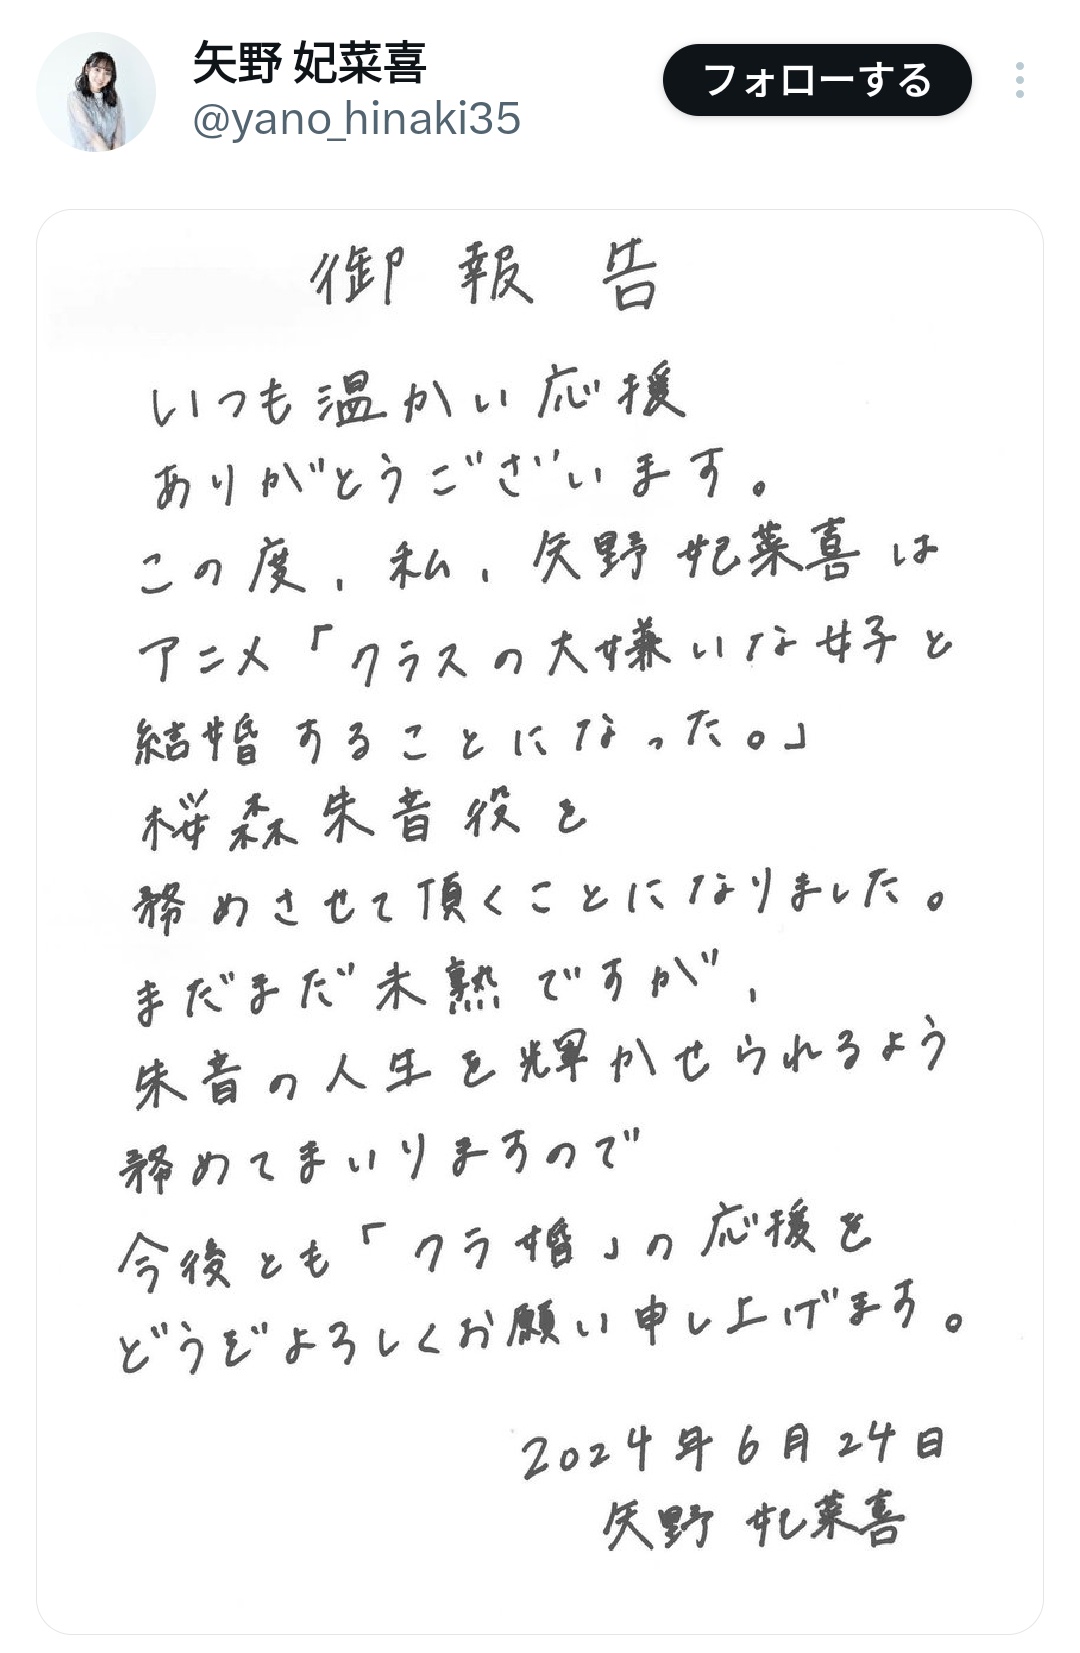 矢野 妃菜喜
@yano_hinaki35
フォローする
御報告
いつも温かい応援
ありがとうございます。
この度、私、矢野 妃菜喜は
アニメ「クラスの大嫌いな女子と
結婚することになった。」
桜森朱音役を
務めさせて頂くことになりました。
まだまだ未熟ですが、
朱音の人生を輝かせられるよう
務めてまいりますので
今後とも「クラ婚」の応援を
どうぞよろしくお願い申し上げます。
2024年6月24日
矢野 妃菜喜